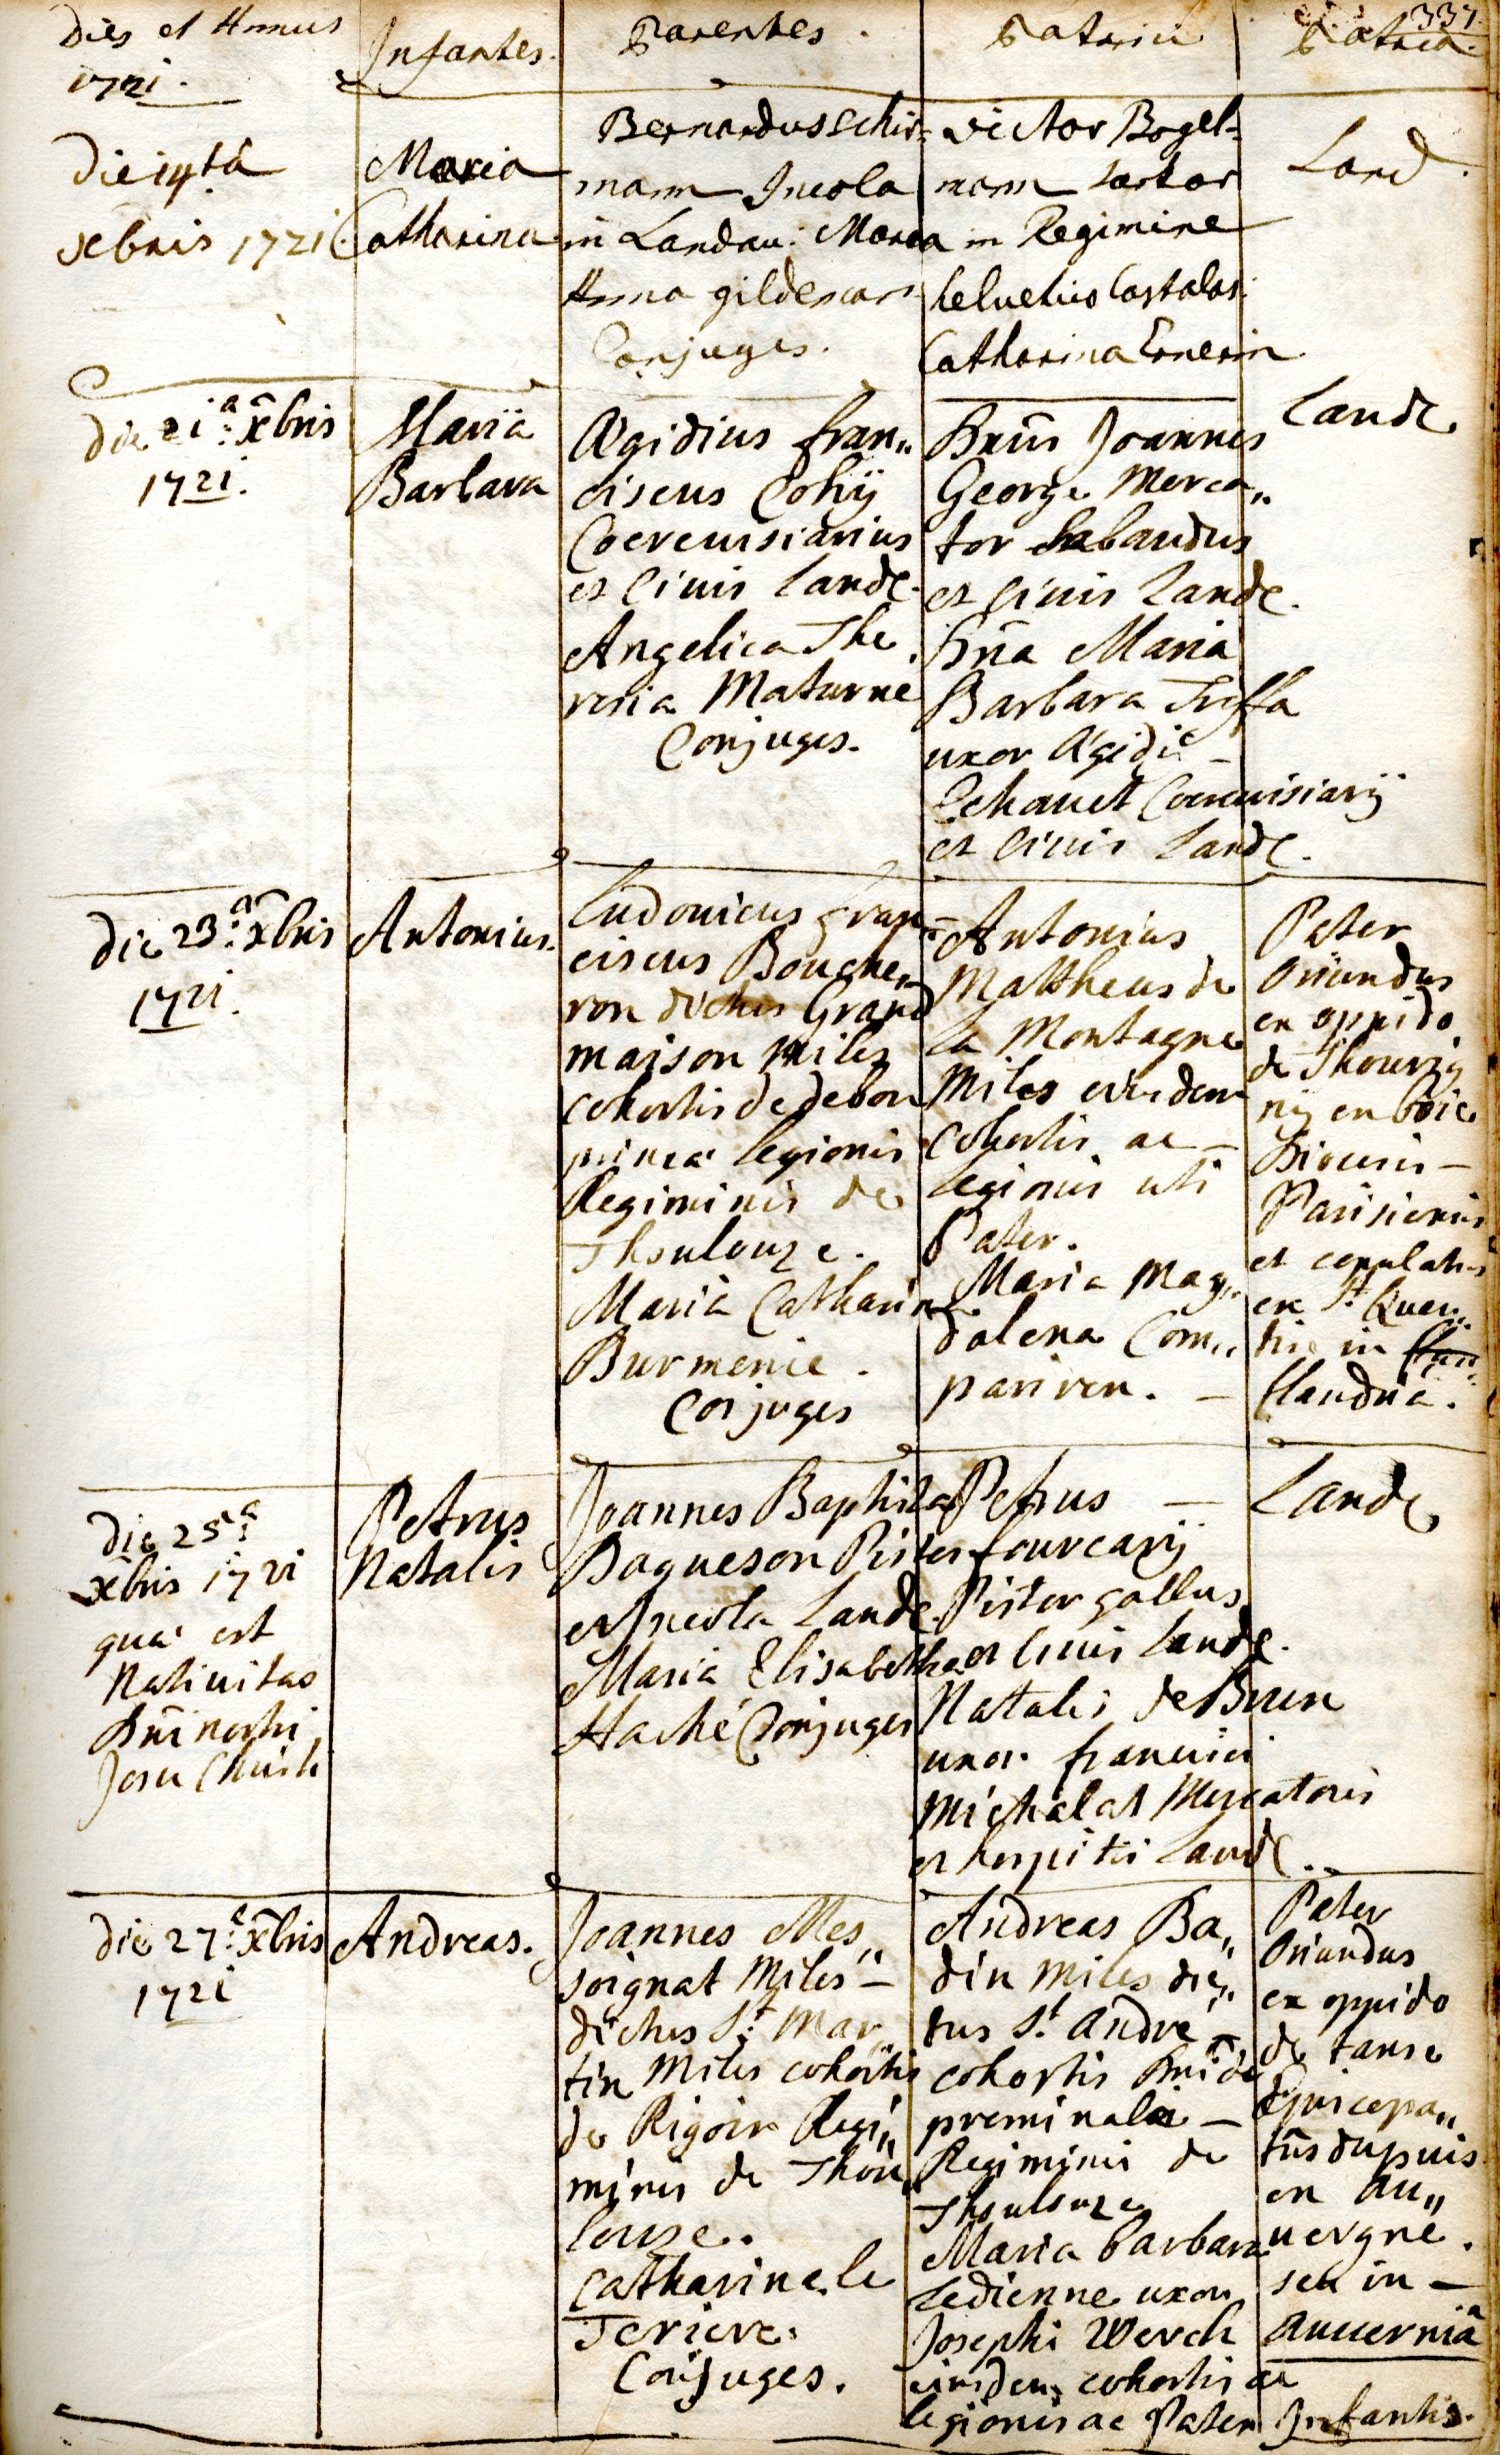 337
Dies et Annus
1721.
Infantes.
Parentes.
Patrini
Patria.
Die 14ta
xbris 1721.
Maria
Catharina
Bernardus Schir=
mann Incola
in Landau: Maria
Anna
Conjuges.
Victor Bogel=
mann
in Regimine
helvetico
Catharina
Land.
die 21.a xbris
1721.
Maria
Barbara
Ægidius fran„
ciscus Cohy
Coerevisiarius
et Civis Landę.
Angelica The
resia Maturne
Conjuges.
Dnus Joannes
George Merca„
tor Sabaudus
et Civis Landę.
Dna Maria
Barbara
uxor Ægidii
Echauet Coerevisiarij
et Civis Landę.
Landę.
die 23.a xbris
1721.
Antonius.
Ludovicus Fran=
ciscus Bougne„
ron dictus Grand
maison miles
cohortis de debon
legionis
Regiminis de
Thoulouze.
Maria Catharina
Burmenie.
Conjuges
Antonius
Mattheus de
la Montagne
Miles eiusdem
Cohortis ac
legionis uti
Pater.
Maria Mag„
dalena Com„
pariven.
Pater
oriundus
ex oppido
de
en brie
Diocesis
Parisiensis
et copulatus
ex St. Quen„
tin in
flandria.
die 25ta
xbris 1721
qua est
Nativitas
Dni nostri
Jesu Christi
Petrus
Natalis
Joannes Baptista
Dagueson Pistor
et Incola Landę.
Maria Elisabetha
Haché Conjuges
Petrus
fourcarij
Pistor gallus
et Civis Landę.
Natalis de Brun
uxor francisci
Michalat Mercatoris
et hospitis Landę.
Landę
die 27.a xbris
1721
Andreas.
Joannes Mes„
soignat Miles
dictus St. Mar„
tin Miles cohortis
de Rigoir Regi„
minis de Thou„
louze.
Catharina le
Teriere.
Conjuges.
Andreas Ba„
din miles dic„
tus St. André
cohortis Dni de
preminale
Regiminis de
Thoulouze
Maria barbara
Ledienne uxor
Josephi Werch
eiusdem cohortis ac
legionis ac Pater
Infantis.
Pater
Oriundus
ex oppido
de tanse
Episcopa„
tus dupuis
en au„
uergne.
seu in
Auuerniâ